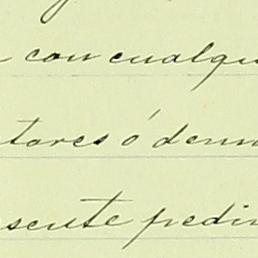 con cualqu
tares ó denu
sente pedi